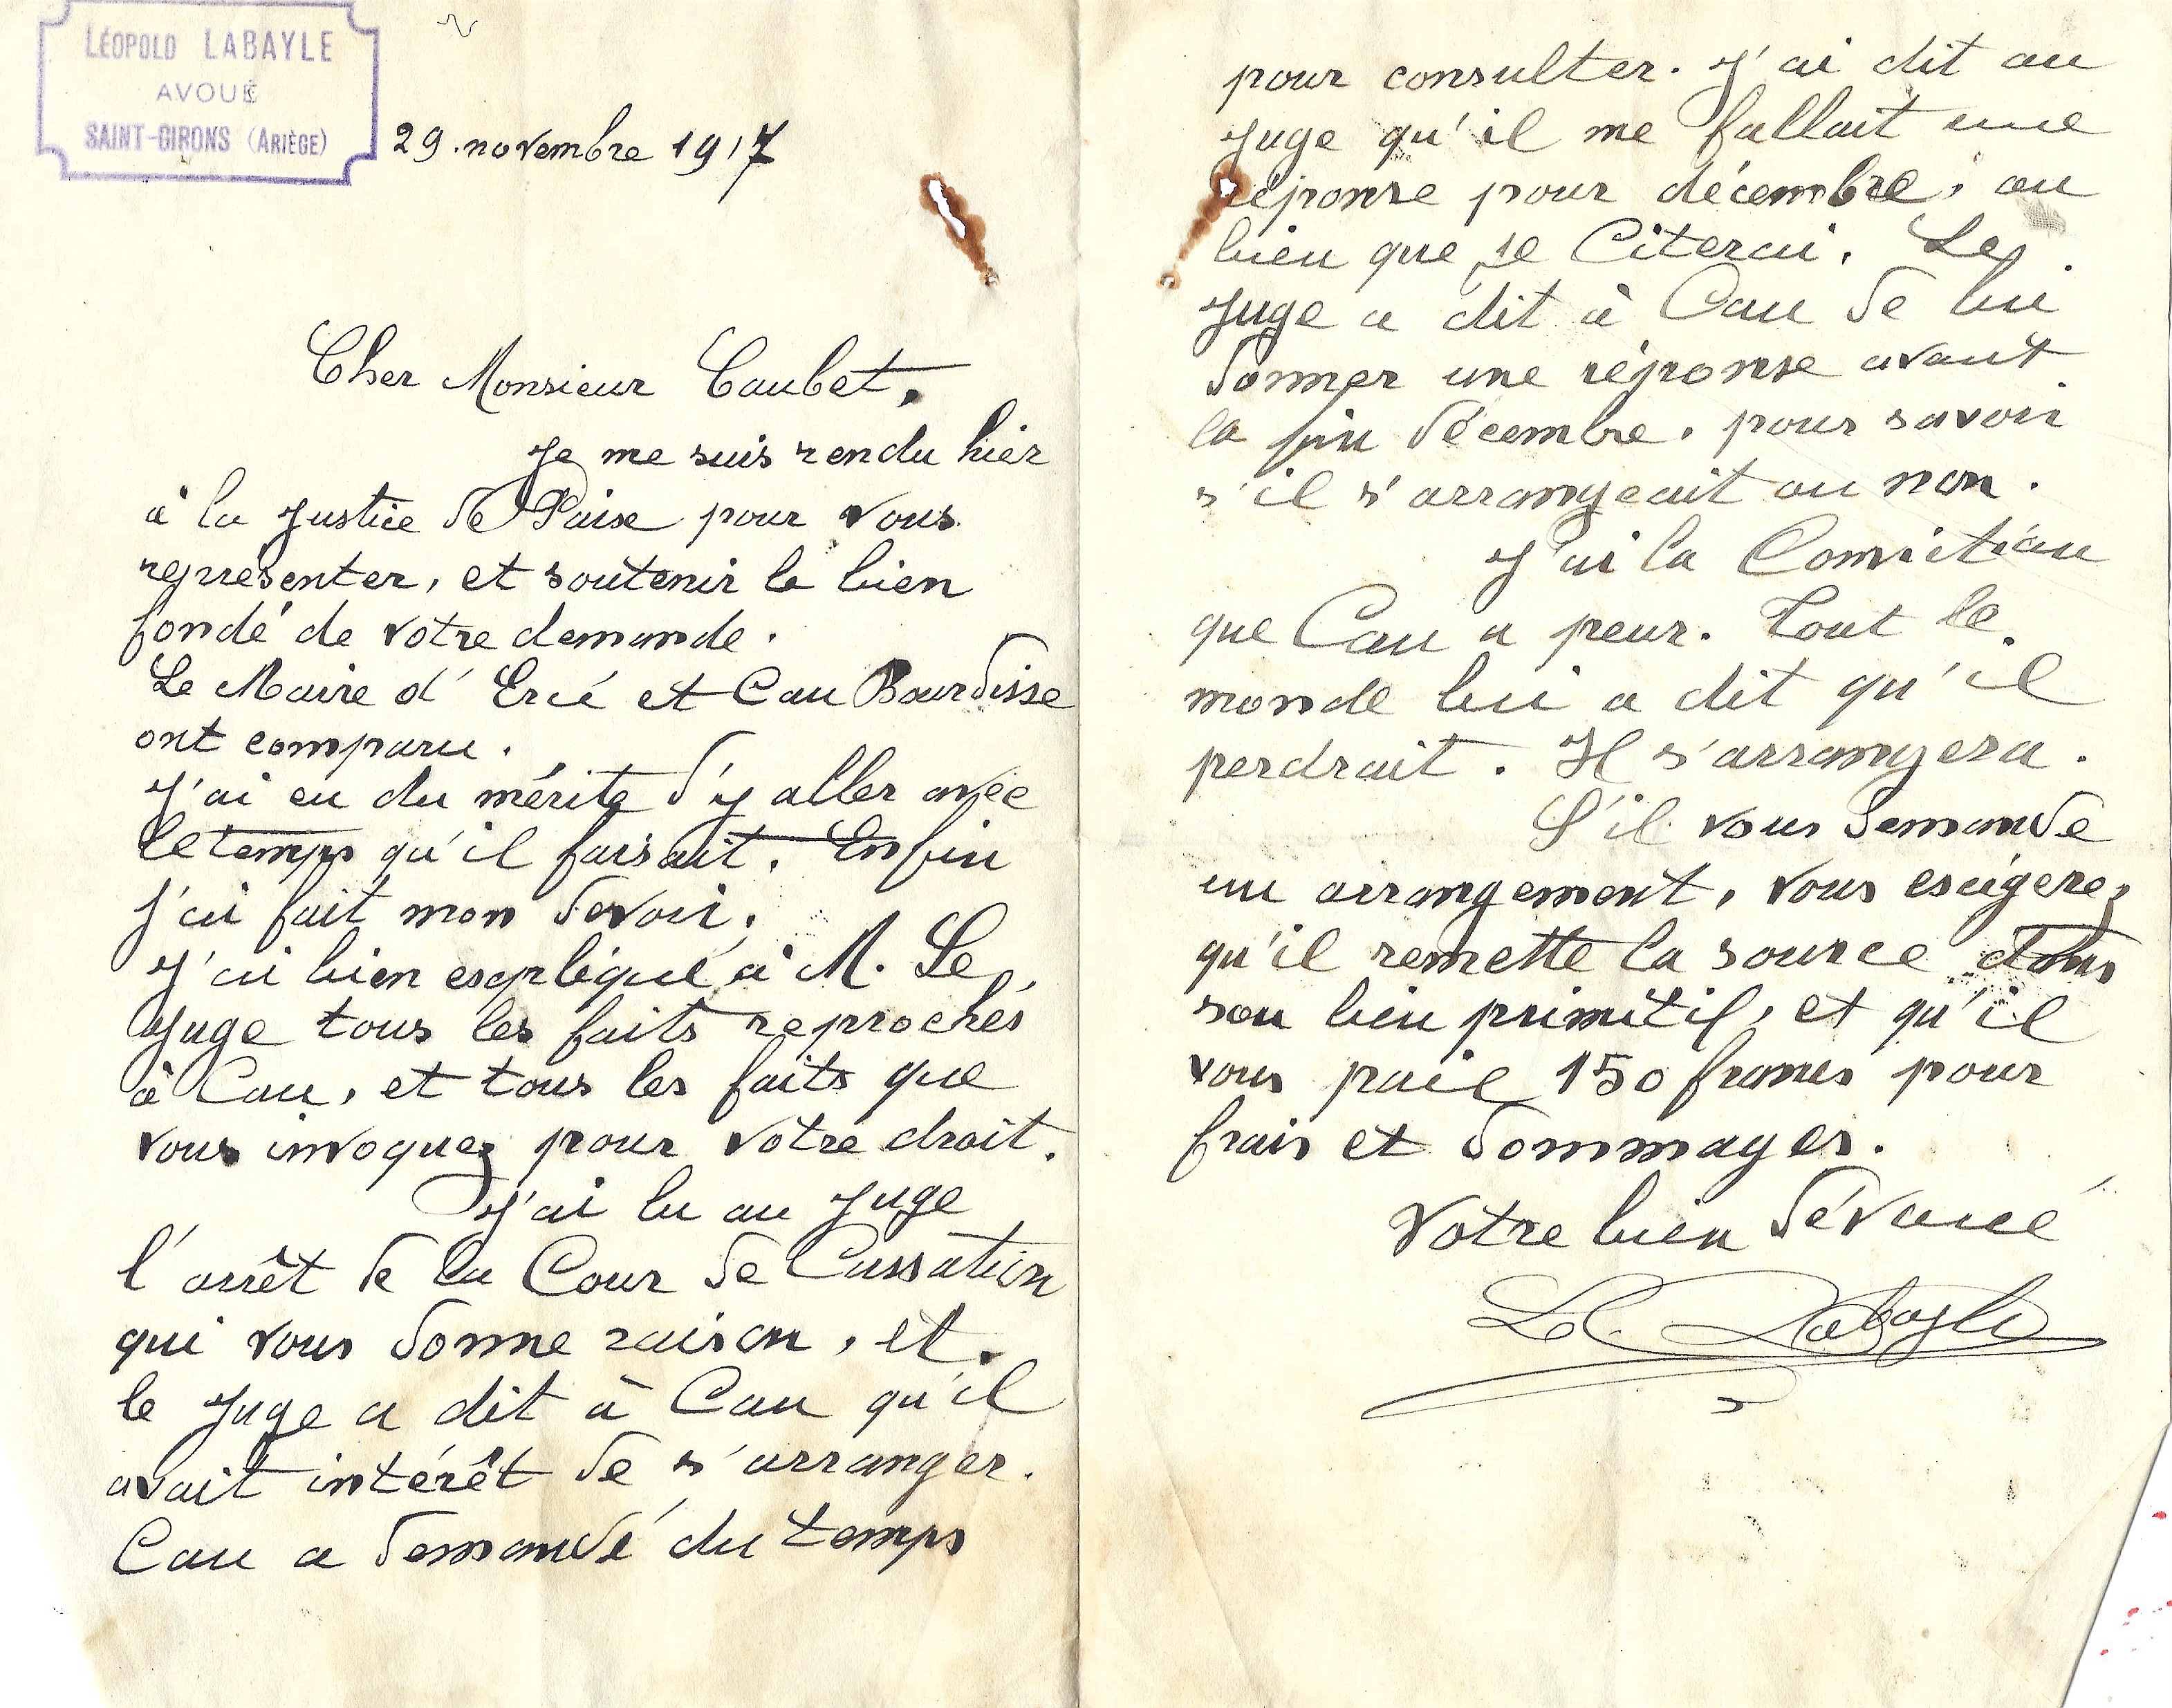 LÉOPOLD LABAYLE
AVOUÉ
SAINT-GIRONS (ARIÈGE)
29 novembre 1917
Cher Monsieur Caubet,
Je me suis rendu hier
à la Justice de Paix pour vous
représenter, et soutenir le bien
fondé de votre demande.
Le Maire d'Ercé et Cau Bourdisse
ont comparu.
J'ai eu du mérite d'y aller avec
le temps qu'il faisait. Enfin
j'ai fait mon devoir.
J'ai bien expliqué à M. Le
Juge tous les faits reprochés
à Cau, et tous les faits que
vous invoquez pour votre droit.
J'ai lu au Juge
l'arrêt de la Cour de Cassation
qui vous donne raison, et
le Juge a dit à Cau qu'il
avait intérêt de s'arranger.
Cau a demandé du temps
pour consulter. J'ai dit au
Juge qu'il me fallait une
réponse pour décembre, ou
bien que je Citerai. Le
Juge a dit à Cau de lui
donner une réponse avant
la fin décembre. pour savoir
s'il s'arrangeait ou non.
J'ai la Conviction
que Cau a peur. Tout le
monde lui a dit qu'il
perdrait. Il s'arrangera.
S'il vous demande
un arrangement, vous exigerez
qu'il remette la source dans
son lieu primitif, et qu'il
vous paie 150 francs pour
frais et dommages.
Votre bien dévoué
Ld. Labayle